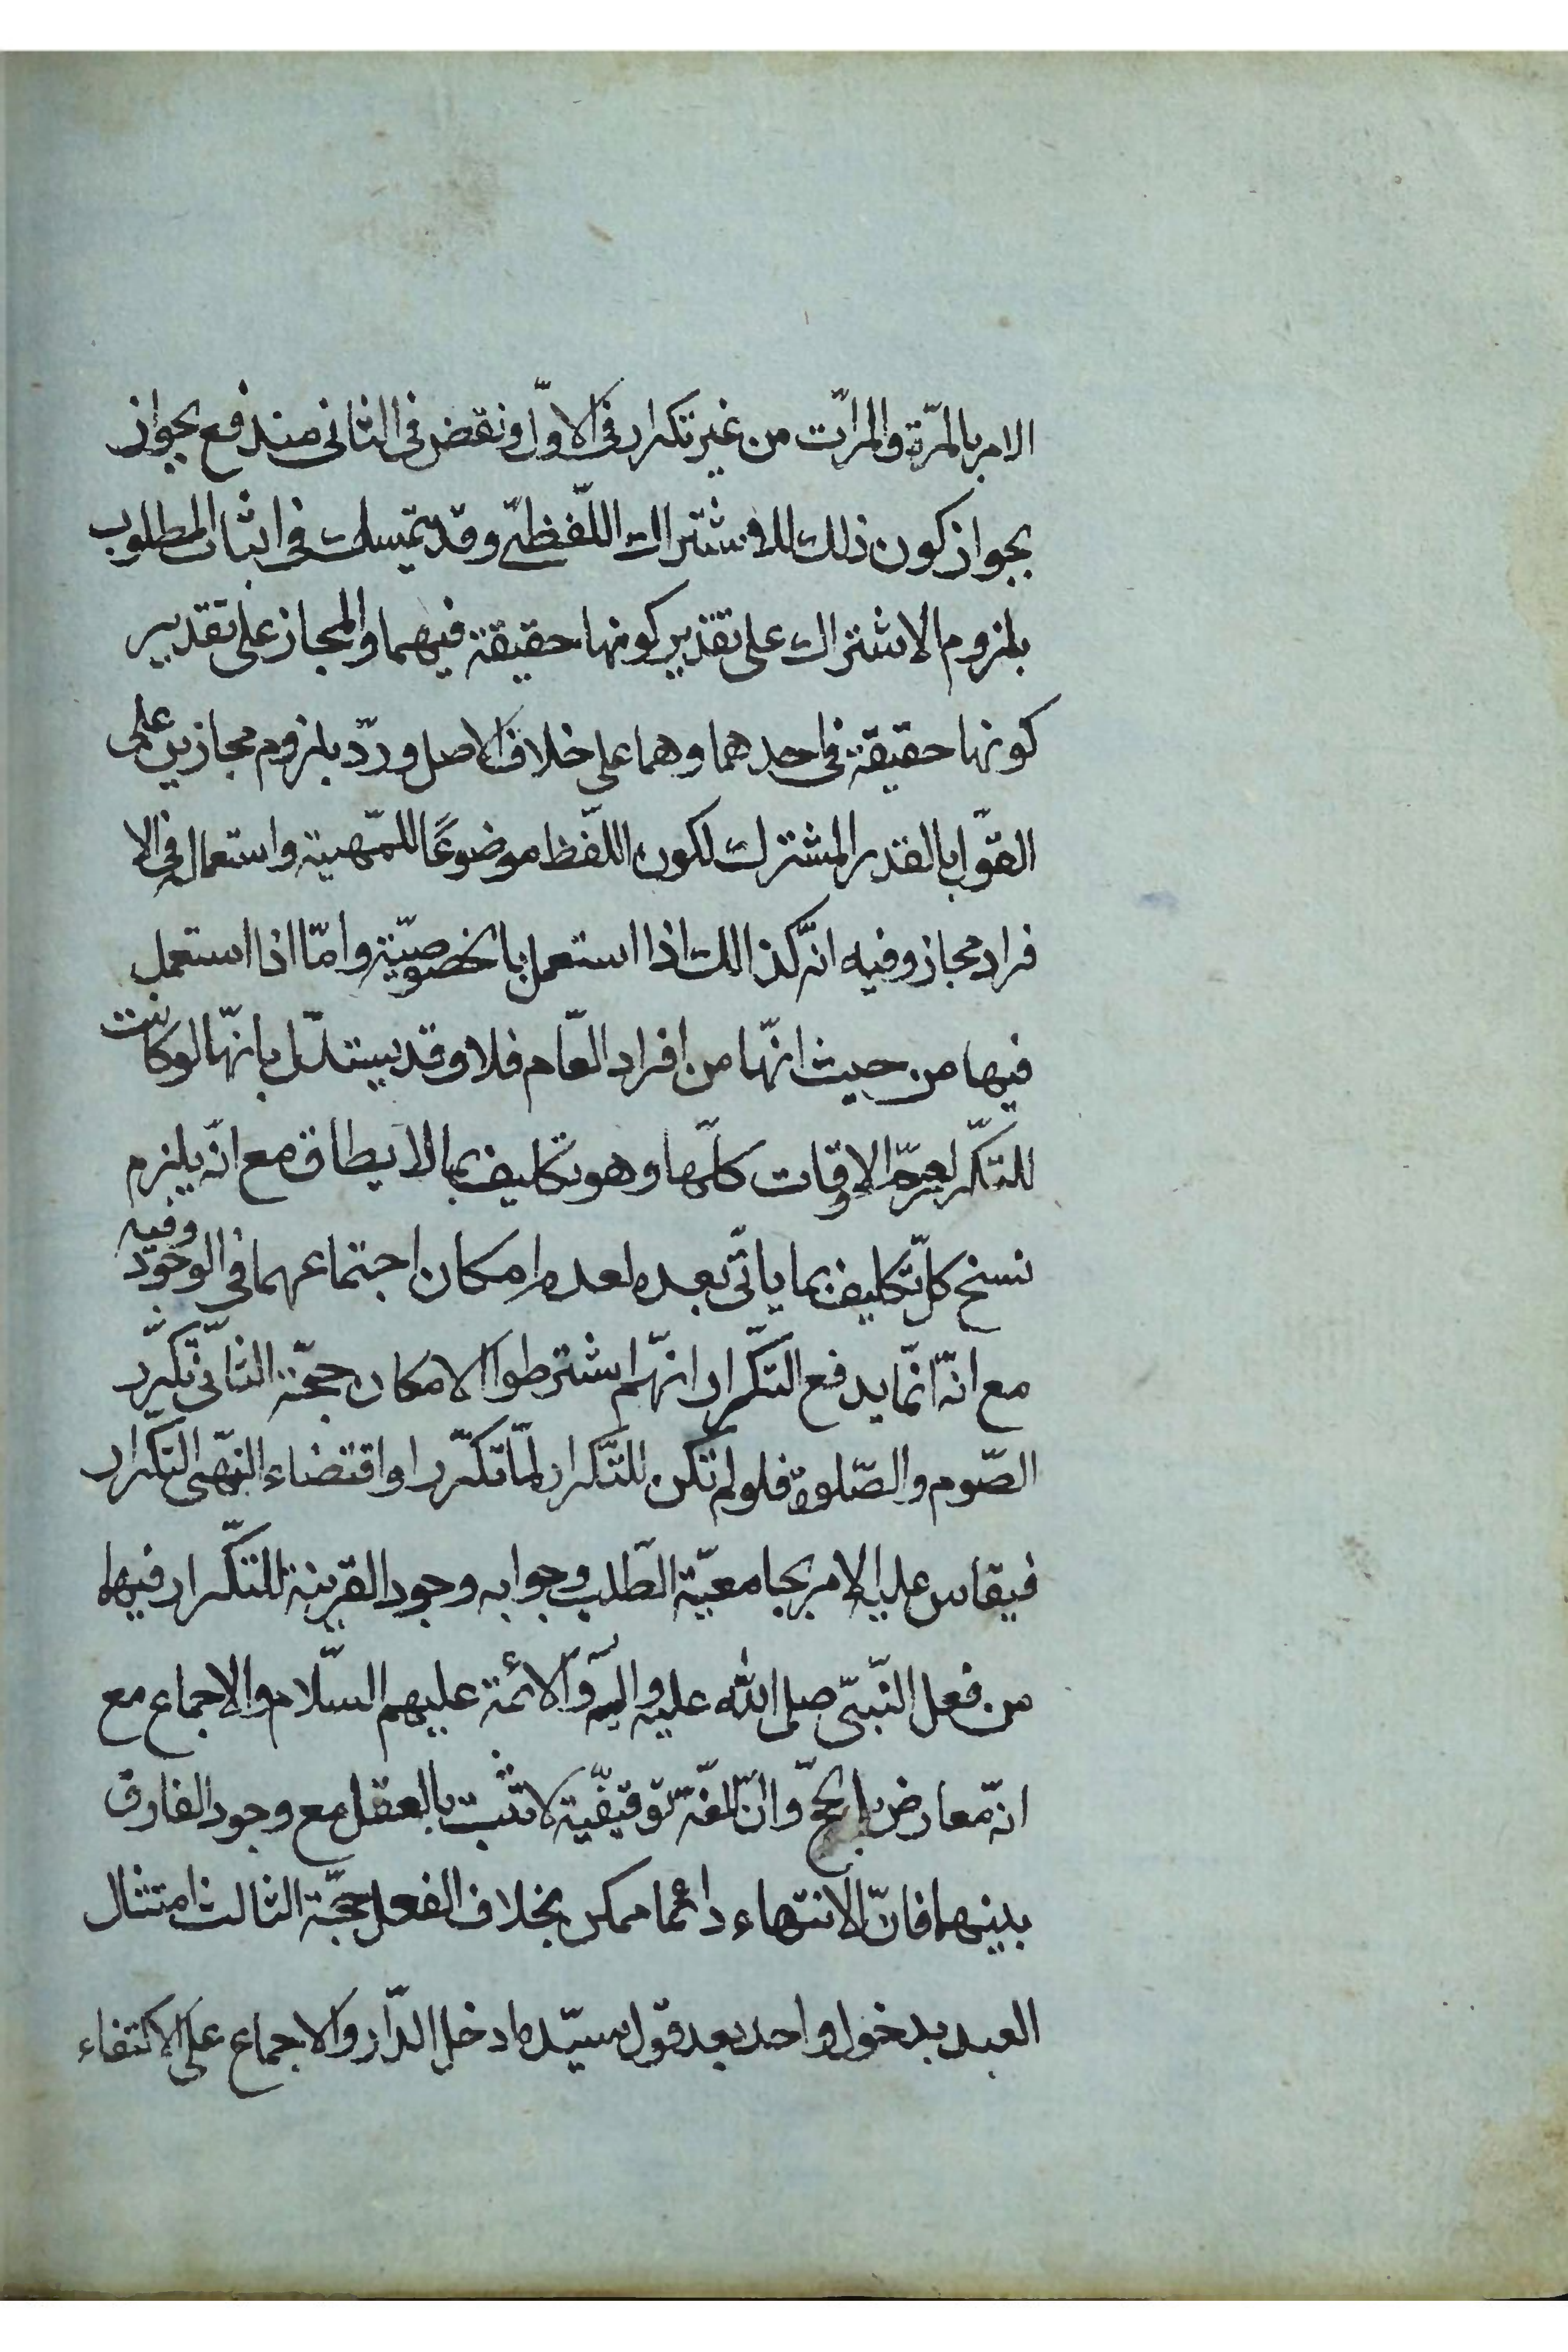 الامر بالمرّة والمرّات من غير تكرار فى الاوّل ونقض فى الثانى مندفع بجواز
بجواز كون ذلك للاشتراك اللّفظىّ وقد يتمسك فى اثبات المطلوب
بلزوم الاشتراك على تقدير كونها حقيقة فيهما والمجاز على تقدير
كونها حقيقة فى احدهما وهما على خلاف الاصل وردّ بلزوم مجازين على
القوّل بالقدر المشترك لكون اللّفظ موضوعًا للمّهية واستعماله فى الا
فراد مجاز وفيه انّه كذالك اذا استعمل بالخصوصيّة وامّا اذا استعمل
فيها من حيث انّها من افراد العّام فلا وقد يستدّل بانّها لو كانت
للتكّرر لعمّ الاوقات كلّها وهو تكليف بما لا يطاق مع انّه يلزم
نسخ كلّ تكليف بما ياتى بعده لعدم امكان اجتماعهما فى الوجود وفيه
مع انّه انّما يدفع التكّرار انّهم اشترطوا الامكان حجّة الثّانى تكّرر
الصّوم والصّلوة فلو لم تكن للتّكرار لمّا تكّررا واقتضاء النّهى التكّرار
فيقاس عليه الامر بجامعيّة الطّلب وجوابه وجود القرينة للتكّرار فيها
من فعل النّبىّ صلى الله عليه واله والائمة عليهم السّلام والاجماع مع
انّه معارض بالحجّ وانّ اللّغة توقيفّية لا تثبت بالعقل مع وجود الفارق
بينهما فانّ الانتهاء دائما ممكن بخلاف الفعل حجّة الثالث امتثال
العبد بدخول واحد بعد قول سيّده ادخل الدّار والاجماع على الاكتفاء